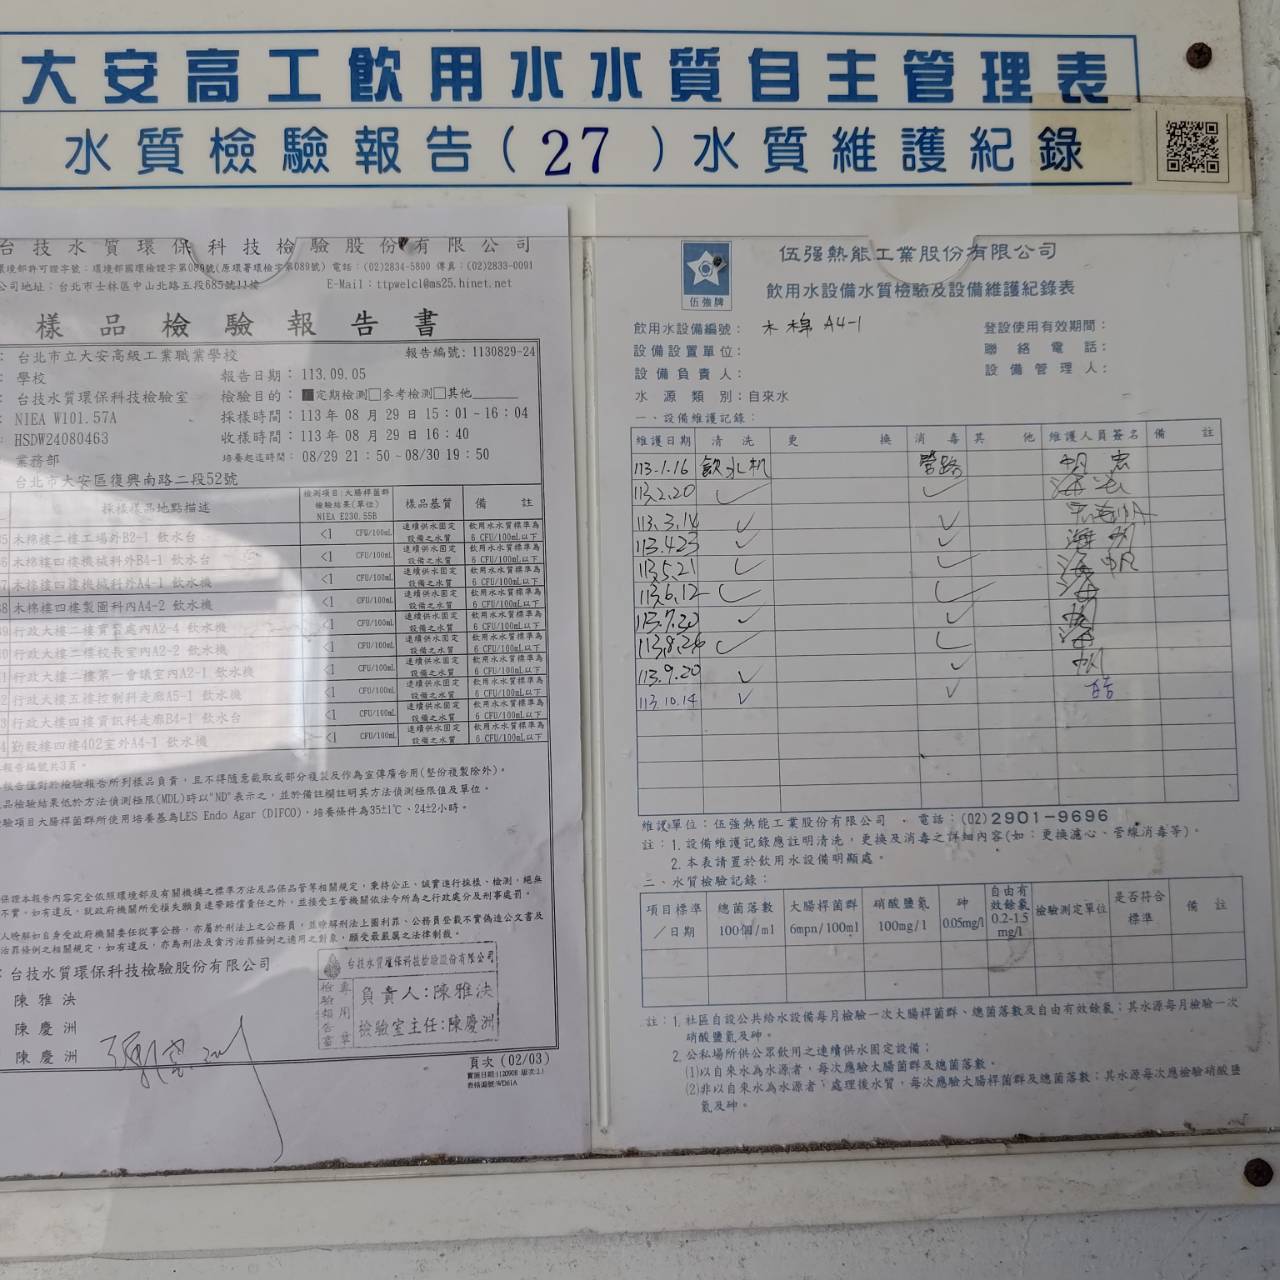 大安高工飲用水水質自主管理表
水質檢驗報告(27)水質維護紀錄
台技水質環保科技檢驗股份有限公司
環境部許可證字號：環境部國環檢證字第089號(原環署環檢字第089號) 電話：(02)2834-5800 傳真：(02)2833-0091
公司地址：台北市士林區中山北路五段685號11樓 E-Mail：ttpwelcl@ms25.hinet.net
樣品檢驗報告書
：台北市立大安高級工業職業學校 報告編號：1130829-24
：學校 報告日期：113.09.05
：台技水質環保科技檢驗室 檢驗目的：■定期檢測□參考檢測□其他
：NIEA W101.57A 採樣時間：113 年 08 月 29 日 15：01~16：04
：HSDW24080463 收樣時間：113 年 08 月 29 日 16：40
業務部 培養起迄時間：08/29 21：50~08/30 19：50
台北市大安區復興南路二段52號
採樣樣品地點描述 檢測項目：大腸桿菌群 檢驗結果(單位) NIEA E230.55B 樣品基質 備註
木棉樓二樓工場外B2-1 飲水台 <1 CFU/100mL 連續供水固定設備之水質 飲用水水質標準為6 CFU/100mL以下
木棉樓四樓機械科外B4-1 飲水台 <1 CFU/100mL 連續供水固定設備之水質 飲用水水質標準為6 CFU/100mL以下
木棉樓四樓機械科外A4-1 飲水機 <1 CFU/100mL 連續供水固定設備之水質 飲用水水質標準為6 CFU/100mL以下
木棉樓四樓製圖科內A4-2 飲水機 <1 CFU/100mL 連續供水固定設備之水質 飲用水水質標準為6 CFU/100mL以下
行政大樓二樓實習處內A2-4 飲水機 <1 CFU/100mL 連續供水固定設備之水質 飲用水水質標準為6 CFU/100mL以下
行政大樓二樓校長室內A2-2 飲水機 <1 CFU/100mL 連續供水固定設備之水質 飲用水水質標準為6 CFU/100mL以下
行政大樓二樓第一會議室內A2-1 飲水機 <1 CFU/100mL 連續供水固定設備之水質 飲用水水質標準為6 CFU/100mL以下
行政大樓五樓控制科走廊A5-1 飲水機 <1 CFU/100mL 連續供水固定設備之水質 飲用水水質標準為6 CFU/100mL以下
行政大樓四樓資訊科走廊B4-1 飲水台 <1 CFU/100mL 連續供水固定設備之水質 飲用水水質標準為6 CFU/100mL以下
勤毅樓四樓402室外A4-1 飲水機 <1 CFU/100mL 連續供水固定設備之水質 飲用水水質標準為6 CFU/100mL以下
報告編號共3頁。
報告僅對於檢驗報告所列樣品負責，且不得隨意截取或部分複製及作為宣傳廣告用(整份複製除外)。
品檢驗結果低於方法偵測極限(MDL)時以"ND"表示之，並於備註欄註明其方法偵測極限值及單位。
驗項目大腸桿菌群所使用培養基為LES Endo Agar (DIFCO)，培養條件為35±1℃、24±2小時。
保證本報告內容完全依照環境部及有關機構之標準方法及品保品管等相關規定，秉持公正、誠實進行採樣、檢測，絕無
不實。如有違反，就政府機關所受損失願負連帶賠償責任之外，並接受主管機關依法令所為之行政處分及刑事處罰。
人瞭解如自身受政府機關委任從事公務，亦屬於刑法上之公務員，並瞭解刑法上圖利罪、公務員登載不實偽造公文書及
治罪條例之相關規定，如有違反，亦為刑法及貪污治罪條例之適用之對象，願受最嚴厲之法律制裁。
：台技水質環保科技檢驗股份有限公司
陳雅泱
陳慶洲
陳慶洲
台技水質環保科技檢驗股份有限公司
檢驗報告專用章
負責人：陳雅泱
檢驗室主任：陳慶洲
頁次 (02/03)
伍強牌
伍强熱能工業股份有限公司
飲用水設備水質檢驗及設備維護紀錄表
飲用水設備編號：木棉 A4-1 登設使用有效期間：
設備設置單位： 聯絡電話：
設備負責人： 設備管理人：
水源類別：自來水
一、設備維護記錄：
維護日期 清洗 更換 消毒 其他 維護人員簽名 備註
113.1.16 飲水机 管路
113.2.20 ✓ ✓
113.3.14 ✓ ✓
113.4.23 ✓ ✓
113.5.21 ✓ ✓
113.6.12 ✓ ✓
113.7.20 ✓ ✓
113.8.26 ✓ ✓
113.9.20 ✓ ✓
113.10.14 ✓ ✓
維護單位：伍強熱能工業股份有限公司．電話：(02)2901-9696
註：1.設備維護記錄應註明清洗，更換及消毒之詳細內容(如：更換濾心、管線消毒等)。
2.本表請置於飲用水設備明顯處。
二、水質檢驗記錄：
項目標準／日期 總菌落數100個/ml 大腸桿菌群6mpn/100ml 硝酸鹽氮100mg/1 砷0.05mg/l 自由有效餘氯0.2-1.5mg/l 檢驗測定單位 是否符合標準 備註
註：1.社區自設公共給水設備每月檢驗一次大腸桿菌群、總菌落數及自由有效餘氯；其水源每月檢驗一次
硝酸鹽氮及砷。
2.公私場所供公眾飲用之連續供水固定設備；
(1)以自來水為水源者，每次應驗大腸桿菌群及總菌落數。
(2)非以自來水為水源者；處理後水質，每次應驗大腸桿菌群及總菌落數；其水源每次應檢驗硝酸鹽
氮及砷。